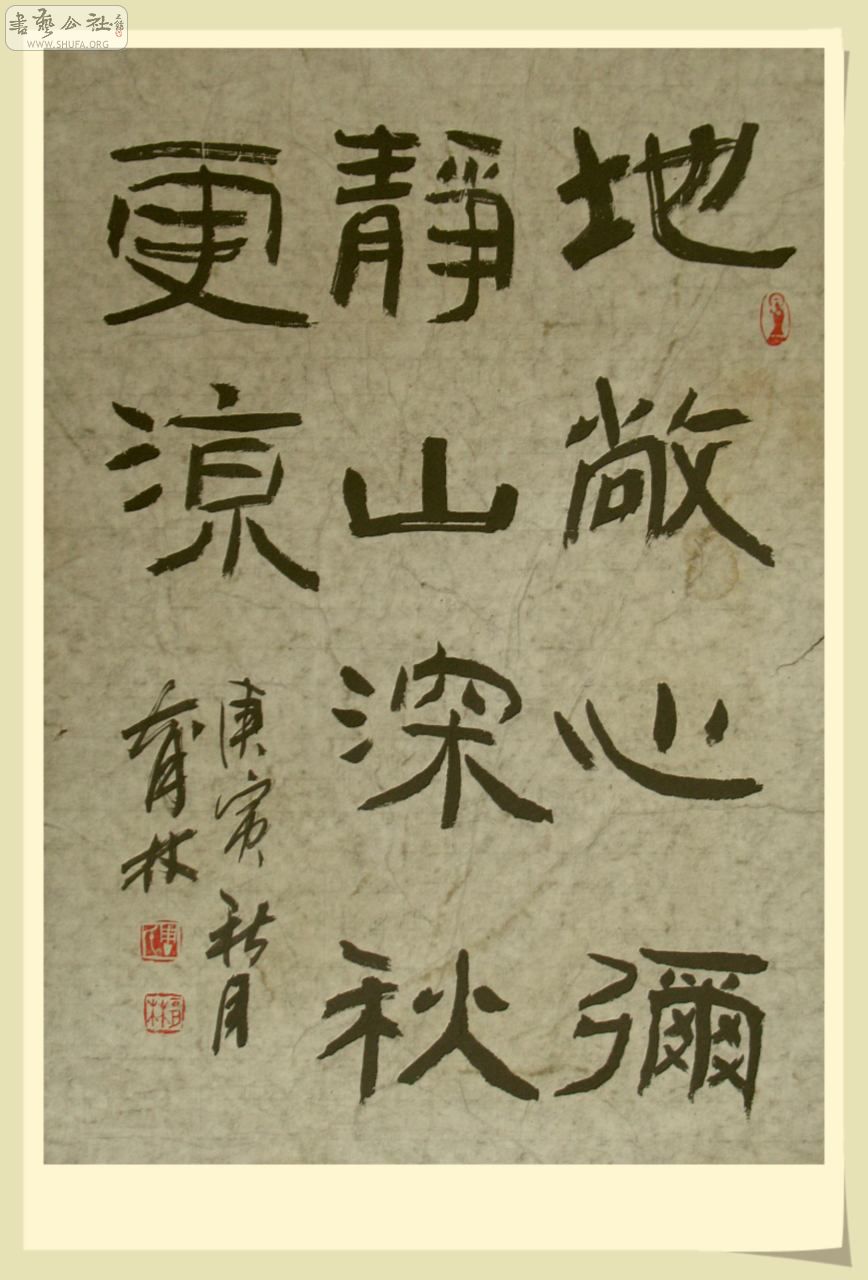 書藝公社
WWW.SHUFA.ORG
地敞心彌
靜山深秋
更涼
庚寅秋月
育林